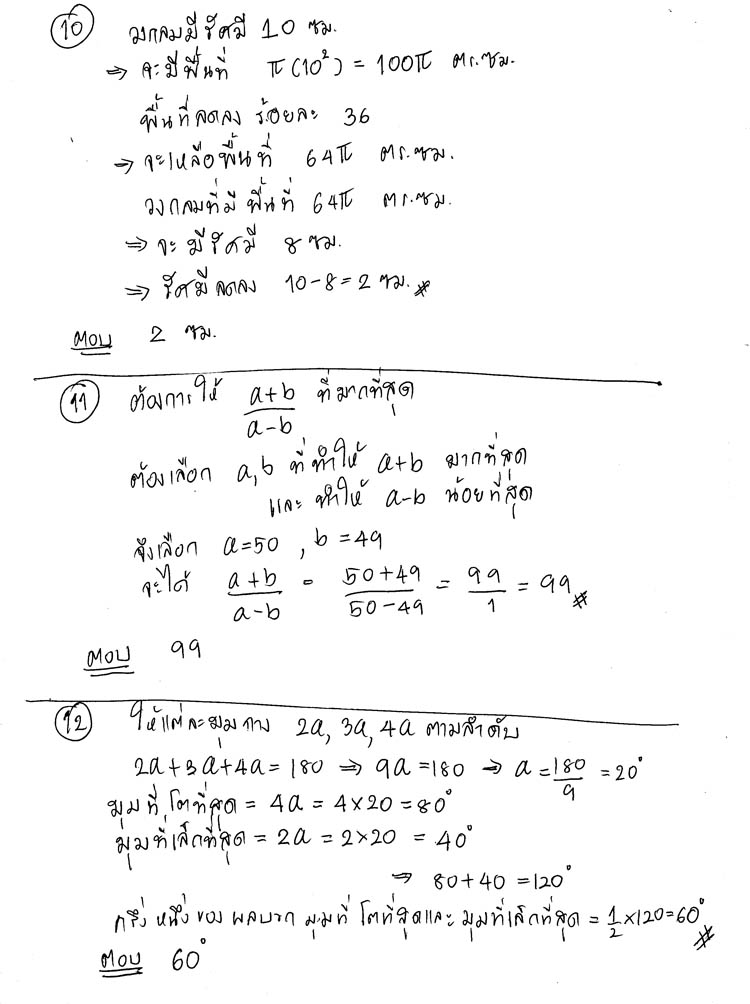 10 วงกลมมีรัศมี 10 ซม.
⇒ จะมีพื้นที่ π(10²) = 100π ตร.ซม.
พื้นที่ลดลง ร้อยละ 36
→ จะเหลือพื้นที่ 64π ตร.ซม.
วงกลมที่มีพื้นที่ 64π ตร.ซม.
⇒ จะมีรัศมี 8 ซม.
⇒ รัศมีลดลง 10-8=2 ซม. #
ตอบ 2 ซม.
11 ต้องการให้ (a+b)/(a-b) ที่มากที่สุด
ต้องเลือก a,b ที่ทำให้ a+b มากที่สุด
และ ทำให้ a-b น้อยที่สุด
จึงเลือก a=50 , b=49
จะได้ (a+b)/(a-b) = (50+49)/(50-49) = 99/1 = 99 #
ตอบ 99
12 ให้แต่ละมุมกาง 2a, 3a, 4a ตามลำดับ
2a+3a+4a=180 ⇒ 9a=180 ⇒ a=180/9=20°
มุมที่โตที่สุด = 4a = 4×20=80°
มุมที่เล็กที่สุด = 2a = 2×20 = 40°
⇒ 80+40=120°
ครึ่งหนึ่งของผลบวก มุมที่โตที่สุดและมุมที่เล็กที่สุด = 1/2×120=60° #
ตอบ 60°